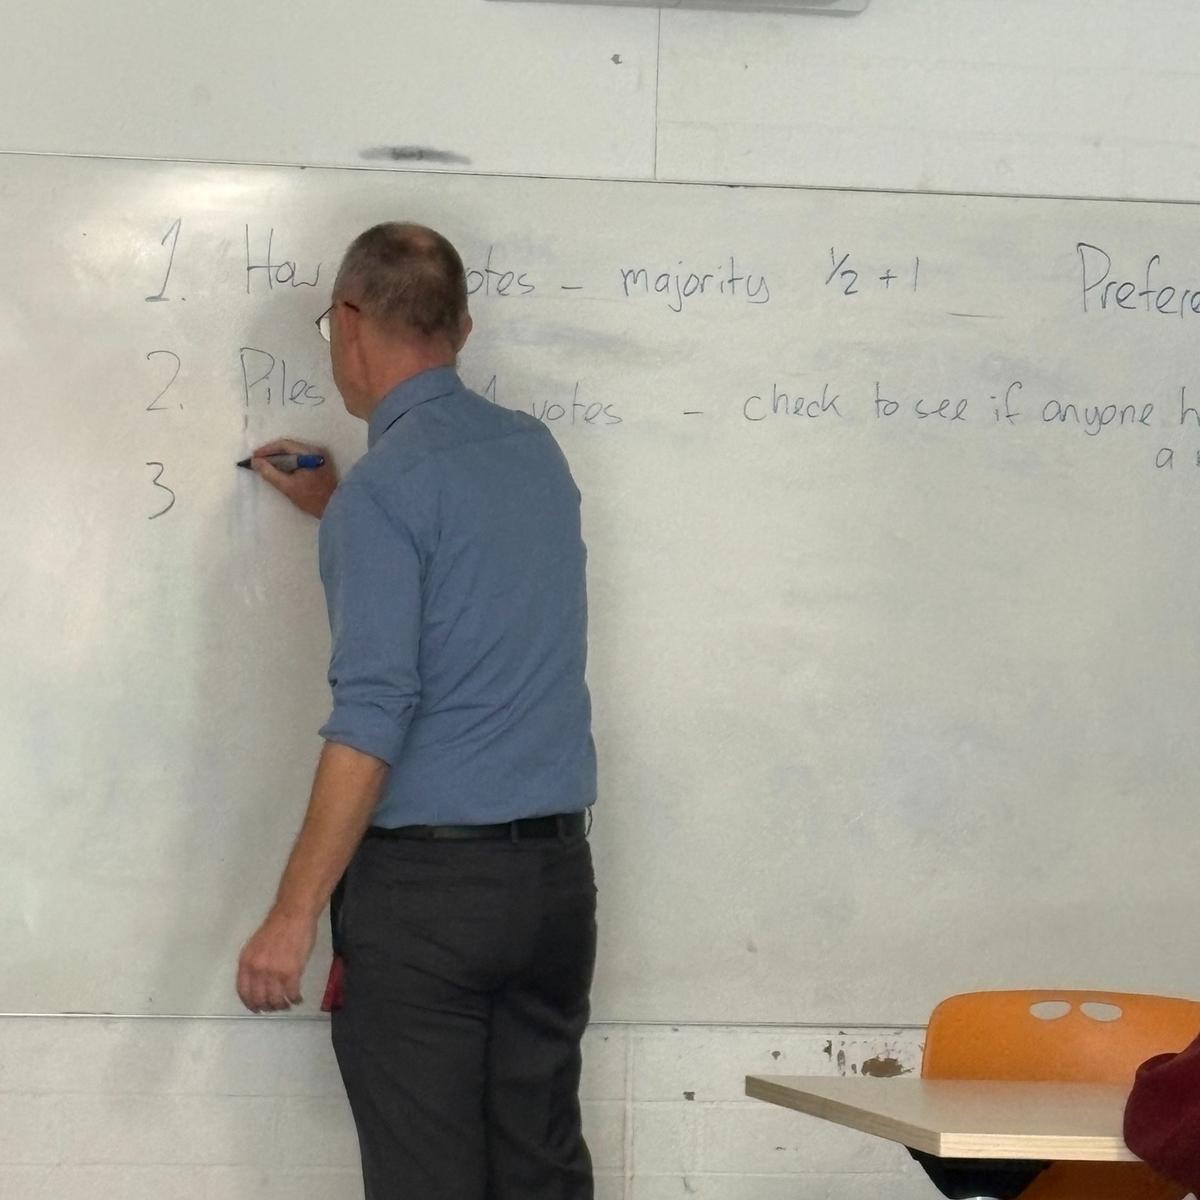 1. How otes – majority ½ + 1 Prefere
2. Piles 1 votes – check to see if anyone h
a
3